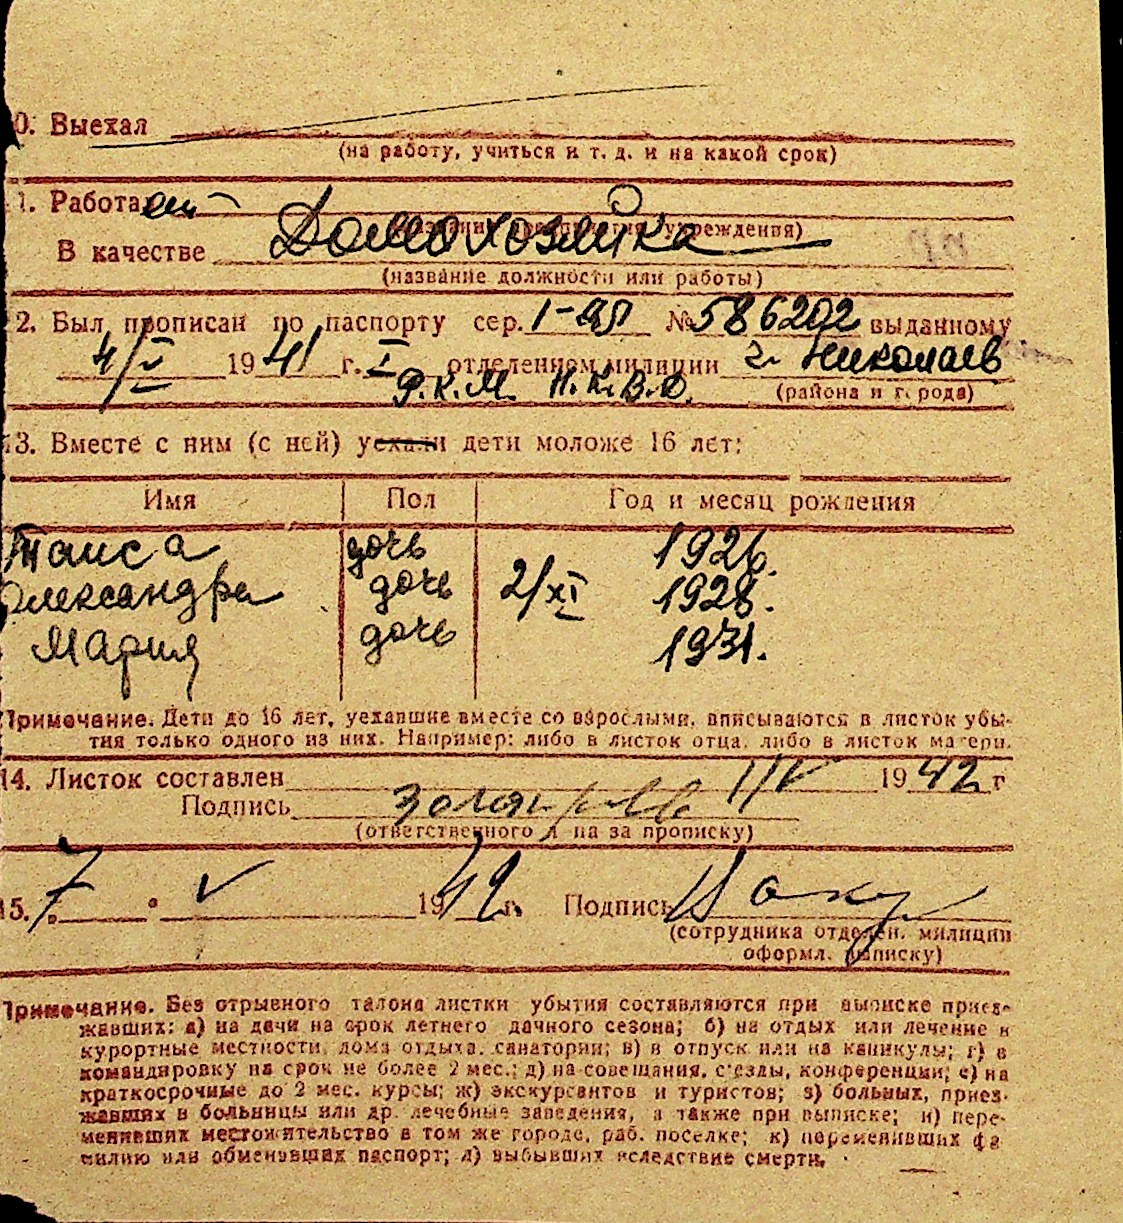 0. Выехал
(на работу, учиться и т. д. и на какой срок)
1. Работа
Домохозяйка
учреждения)
В качестве
(название должности или работы)
2. Был прописан по паспорту сер. № 586202 выданному
4/V 1941 г. I отделением милиции г. Николаев
Р.К.М. Н.К.В.Д. (района и города)
13. Вместе с ним (с ней) уехали дети моложе 16 лет:
Имя Пол Год и месяц рождения
Таиса дочь 1926.
Александра дочь 2/XI 1928.
Мария дочь 1931.
Примечание. Дети до 16 лет, уехавшие вместе со взрослыми, вписываются в листок убы-
тия только одного из них. Например: либо в листок отца, либо в листок матери.
14. Листок составлен 1/V 1942 г
Подпись
(ответственного л па за прописку)
15. 7. V 1942 г. Подпись
(сотрудника отделен. милиции
оформл. выписку)
Примечание. Без отрывного талона листки убытия составляются при выписке приез-
жавших: а) на дачи на срок летнего дачного сезона; б) на отдых или лечение в
курортные местности, дома отдыха, санатории; в) в отпуск или на каникулы; г) в
командировку на срок не более 2 мес.; д) на совещания, съезды, конференции; е) на
краткосрочные до 2 мес. курсы; ж) экскурсантов и туристов; з) больных, приез-
жавших в больницы или др. лечебные заведения, а также при выписке; и) пере-
менивших местожительство в том же городе, раб. поселке; к) переменивших фа
милию или обменявших паспорт; л) выбывших вследствие смерти.